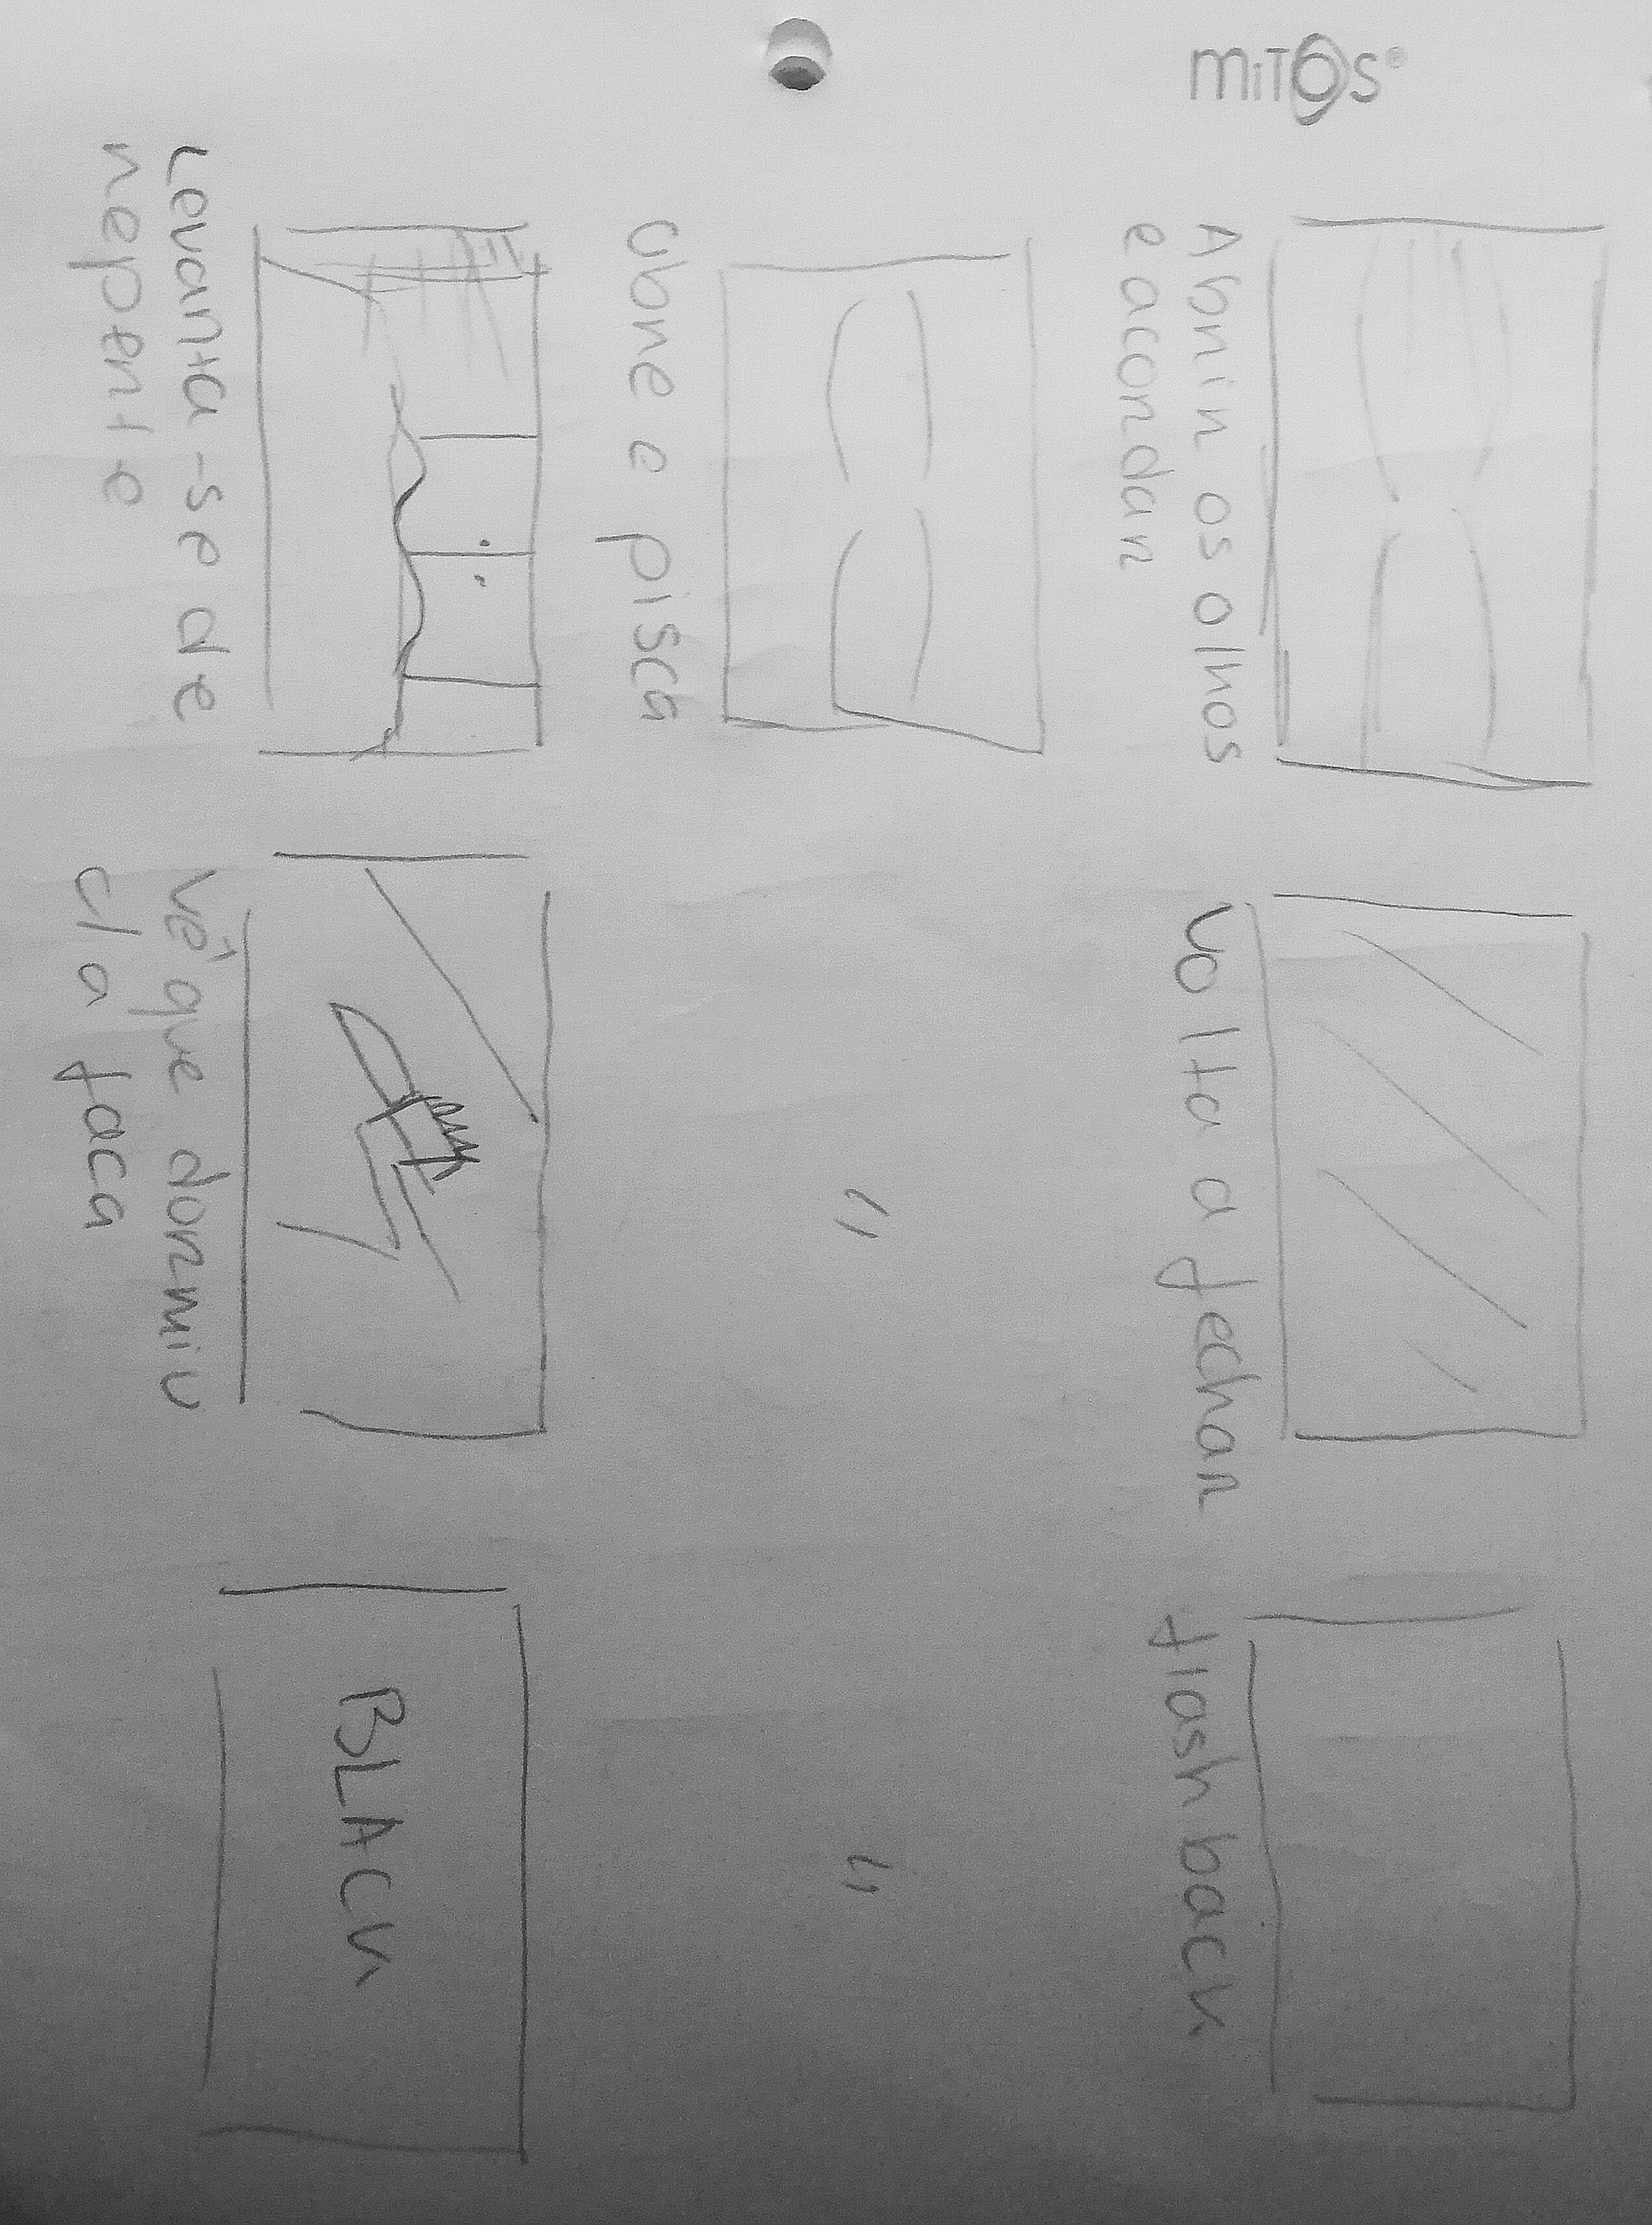 mitos®
Abrir os olhos
e acordar
volta a fechar
flash back
abre e pisca
"
"
Levanta-se de
repente
vê que dormiu
c/a faca
BLACK